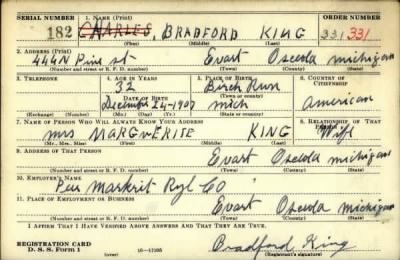 SERIAL NUMBER 1. NAME (Print) ORDER NUMBER
182 CHARLES, BRADFORD KING 331 331
(First) (Middle) (Last)
2. ADDRESS (Print)
444 N Pine st Evart Osceola michigan
(Number and street or R. F. D. number) (Town) (County) (State)
3. TELEPHONE 4. AGE IN YEARS 5. PLACE OF BIRTH 6. COUNTRY OF CITIZENSHIP
32 Birch Run
DATE OF BIRTH (Town or county)
December 24-1907 mich american
(Exchange) (Number) (Mo.) (Day) (Yr.) (State or country)
7. NAME OF PERSON WHO WILL ALWAYS KNOW YOUR ADDRESS 8. RELATIONSHIP OF THAT PERSON
mrs MARGUERITE KING Wife
(Mr., Mrs., Miss) (First) (Middle) (Last)
9. ADDRESS OF THAT PERSON
Evart Osceola michigan
(Number and street or R. F. D. number) (Town) (County) (State)
10. EMPLOYER'S NAME
Pere Markrit Ryl CO
11. PLACE OF EMPLOYMENT OR BUSINESS
Evart Osceola michigan
(Number and street or R. F. D. number) (Town) (County) (State)
I AFFIRM THAT I HAVE VERIFIED ABOVE ANSWERS AND THAT THEY ARE TRUE.
REGISTRATION CARD
D. S. S. Form 1 16-17105 Bradford King
(over) (Registrant's signature)